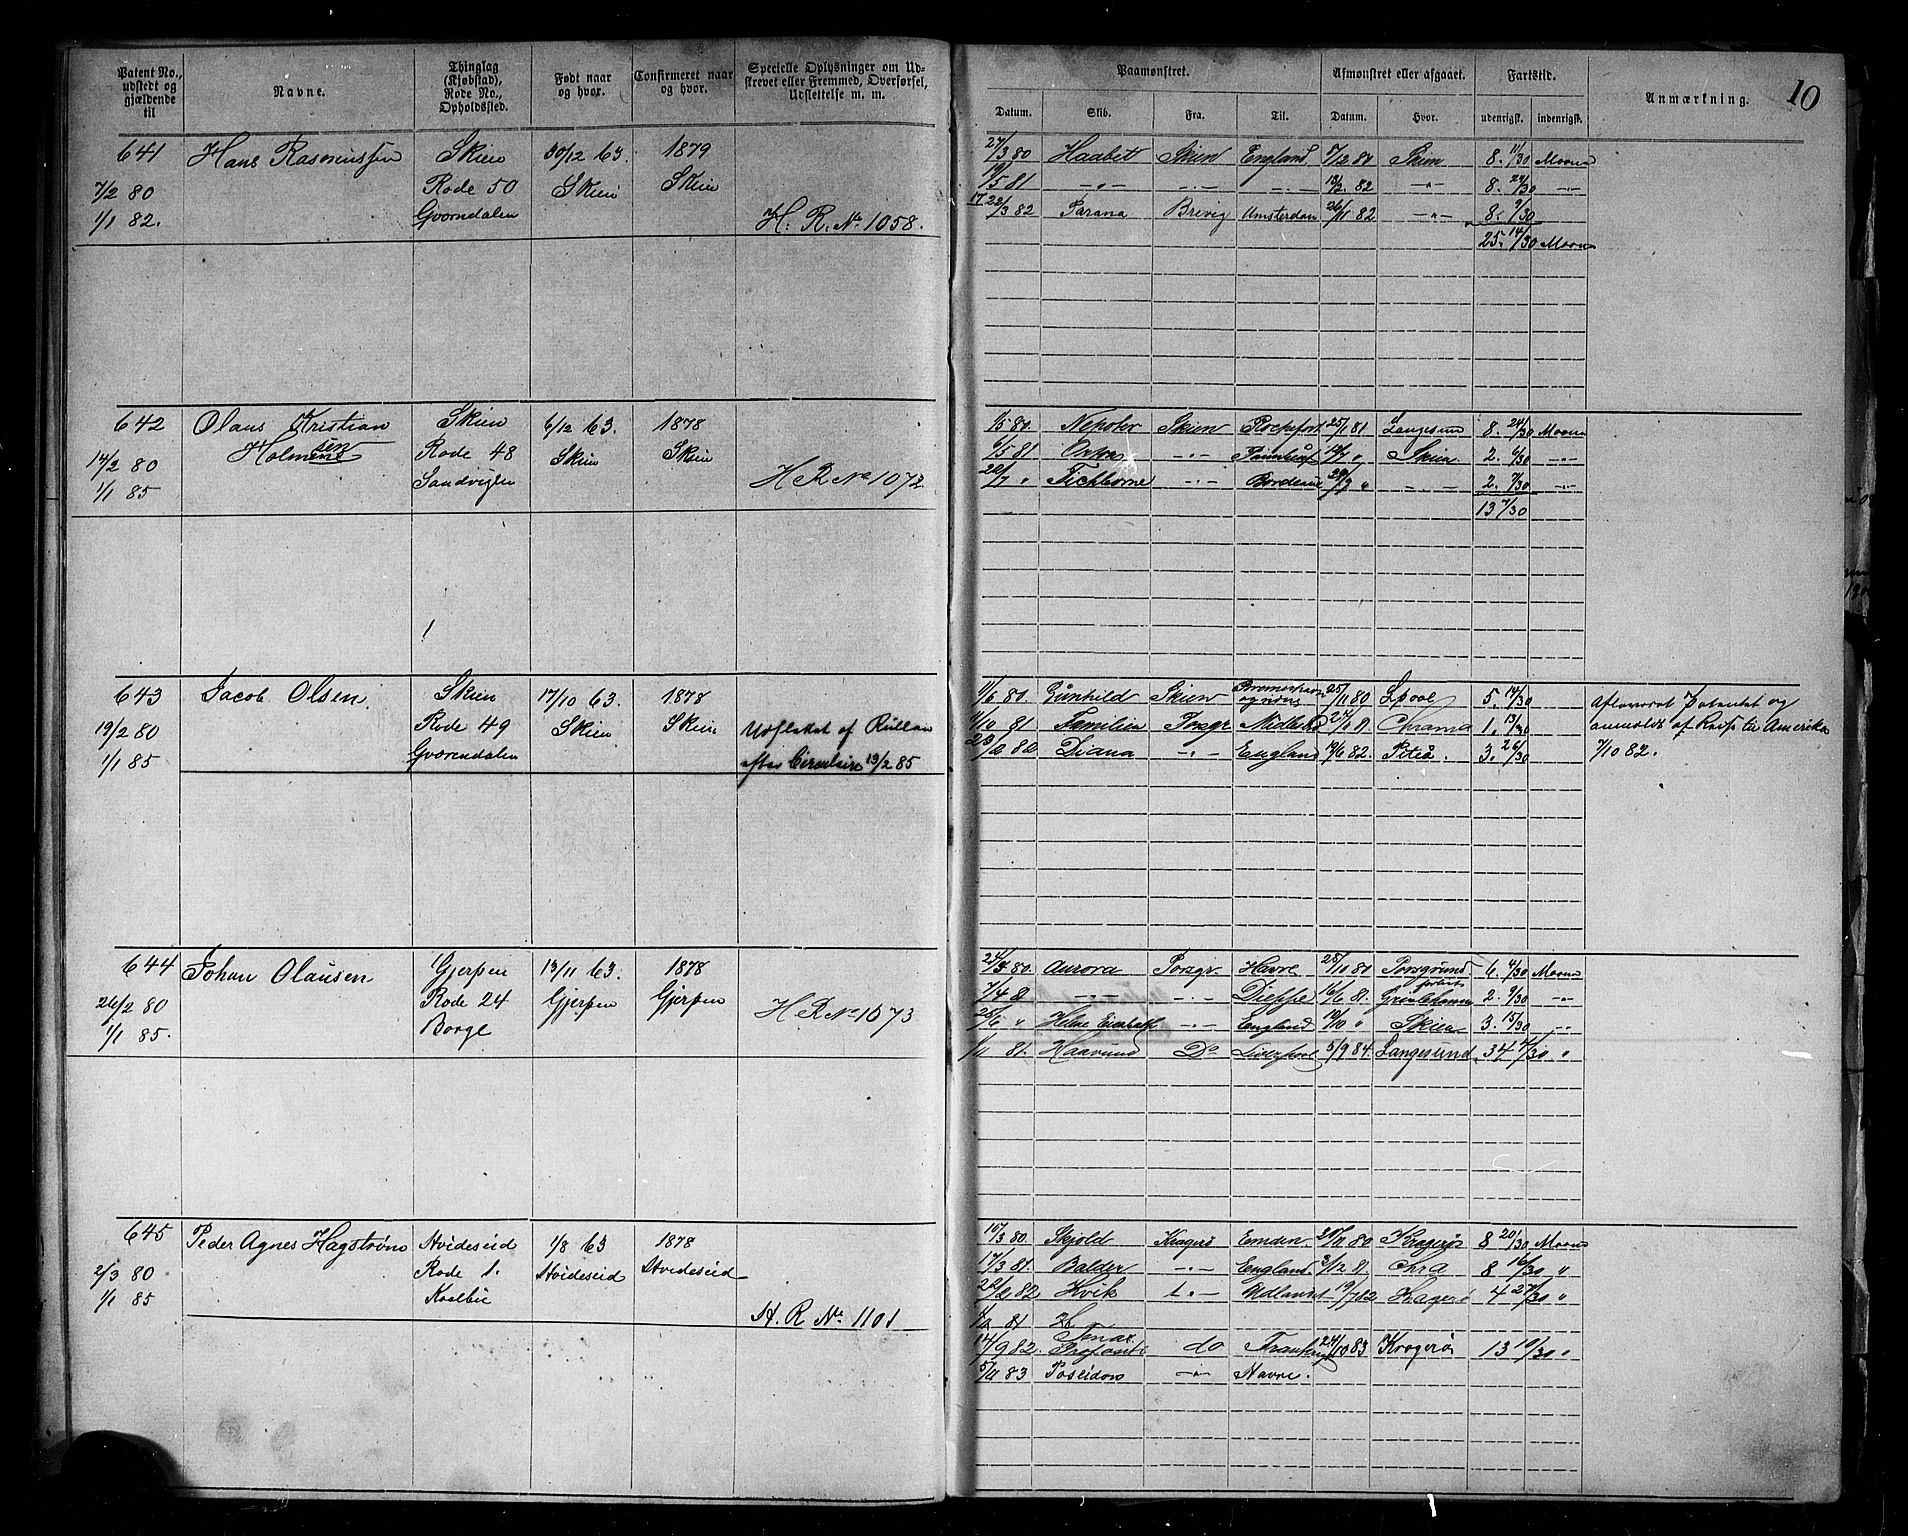 Patent No., udstedt og gjældende til
Navne.
Thinglag (Kjøbstad), Rode No., Opholdssted.
Født naar og hvor.
Confirmeret naar og hvor.
Specielle Oplysninger om Udskrevet eller Fremmed, Overførsel, Udslettelse m. m.
Paamønstret.
Afmønstret eller afgaaet.
Fartstid.
Anmærkning.
10
Datum.
Skib.
Fra.
Til.
Datum.
Hvor.
udenrigsk.
indenrigsk.
641 Hans Rasmussen Skien 30/12 63. 1879
7/2 80 Rode 50 Skien Skien
1/1 82. Gvorndalen H. R. No 1058.
27/3 80 Haabet Skien England 7/12 80 Skien 8. 11/30 Maan
19/5 81 —„— —.— —.— 13/2. 82 —„— 8. 24/30 —„—
22/3 82 Parana Brevig Amsterdam 26/11 82 —„— 8. 9/30
25. 14/30 Maan
642 Olaus Kristian Skien 6/12 63. 1878
Holmsen
14/2 80 Rode 48 Skien Skien
1/1 85 Sandvigen H R No 1072
1/5 80. Skien Rochefort 25/1 81 Langesun 8. 24/30 Maan
6/5 81 —.— 19/7 „ Skien 2. 6/30 —„—
22/7 „ Tichborne —.— Bordeaux „ —„— 2. 7/30 —„—
13 7/30
643 Jacob Olsen Skien 17/10 63. 1878
19/2 80 Rode 49 Skien Skien Udslettet af Rullen
1/1 85 Gvorndalen efter Circulaire 13/2 85
1/6 80. Gunhild Skien 25/11 80 Lpool 5. 14/30 Afleveret Patentet og
1/10 81 Familien Porsgr Midlesb 1. 13/30 anmeldt af Reise til Amerika
Diana —.— England 19/6 82. Piteå. 3. 26/30 7/10 82.
644 Johan Olausen Gjerpen 13/11 63. 1878
26/2 80 Rode 24 Gjerpen Gjerpen
1/1 85. Borge H R No 1073
24/3 80. Aurora Porsgr. Havre 28/10 80 Porsgrund 6. 4/30 Maan
7/4 81 —.— —.— Dieppe 16/6 81. 2. 9/30 —„—
25/6 „ —.— England 19/10 „ Skien 3. 15/30 —„—
1/11 81. Haarund Do Liverpool 5/9 84 Langesund 34 4/30 „
645 Peder Agnes Hagstrøm Hvideseid 1/8 63 1878
2/3 80 Rode 1. Hvideseid Hvideseid
1/1 85 H. R No 1101
10/3 80. Skjold Kragerö Emden 20/11 80 Kragerö 8 20/30 Maan
17/3 81. Balder —.— England 3/12 81. Chra 8 16/30 „
22/2 82 Hvik 19/7 82 4 27/30 „
81
14/9 82. do 24/10 83 Kragerö 13 10/30 „
5/11 83 Poseidon —„— Havre.